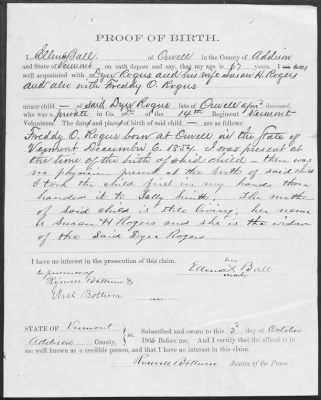 PROOF OF BIRTH.
I, Ellena Ball of Orwell in the County of Addison
and State of Vermont on oath depose and say, that my age is 67 years. I was
well acquainted with Dyer Rogers and his wife Susan H. Rogers
and also with Freddy O. Rogers
minor child of said Dyer Rogers late of Orwell deceased,
who was a private in Co. of the 14th Regiment Vermont
Volunteers. The date and place of birth of said child are as follows:
Freddy O. Rogers born at Orwell in the State of
Vermont December 6. 1854. I was present at
the time of the birth of said child – there was
no physician present at the birth of said child
I took the child first in my hands then
handed it to Sally Smith. The mother
of said child is still living; her name
is Susan H Rogers and she is the widow
of the said Dyer Rogers
I have no interest in the prosecution of this claim.
In presence of
Ellena X Ball
her
mark
Bottum
Bottum
STATE OF Vermont
Addison County,
Subscribed and sworn to this 3d day of October
1864 Before me, And I certify that the affiant is to
me well known as a credible person, and that I have no interest in this claim.
Bottum Justice of the Peace.